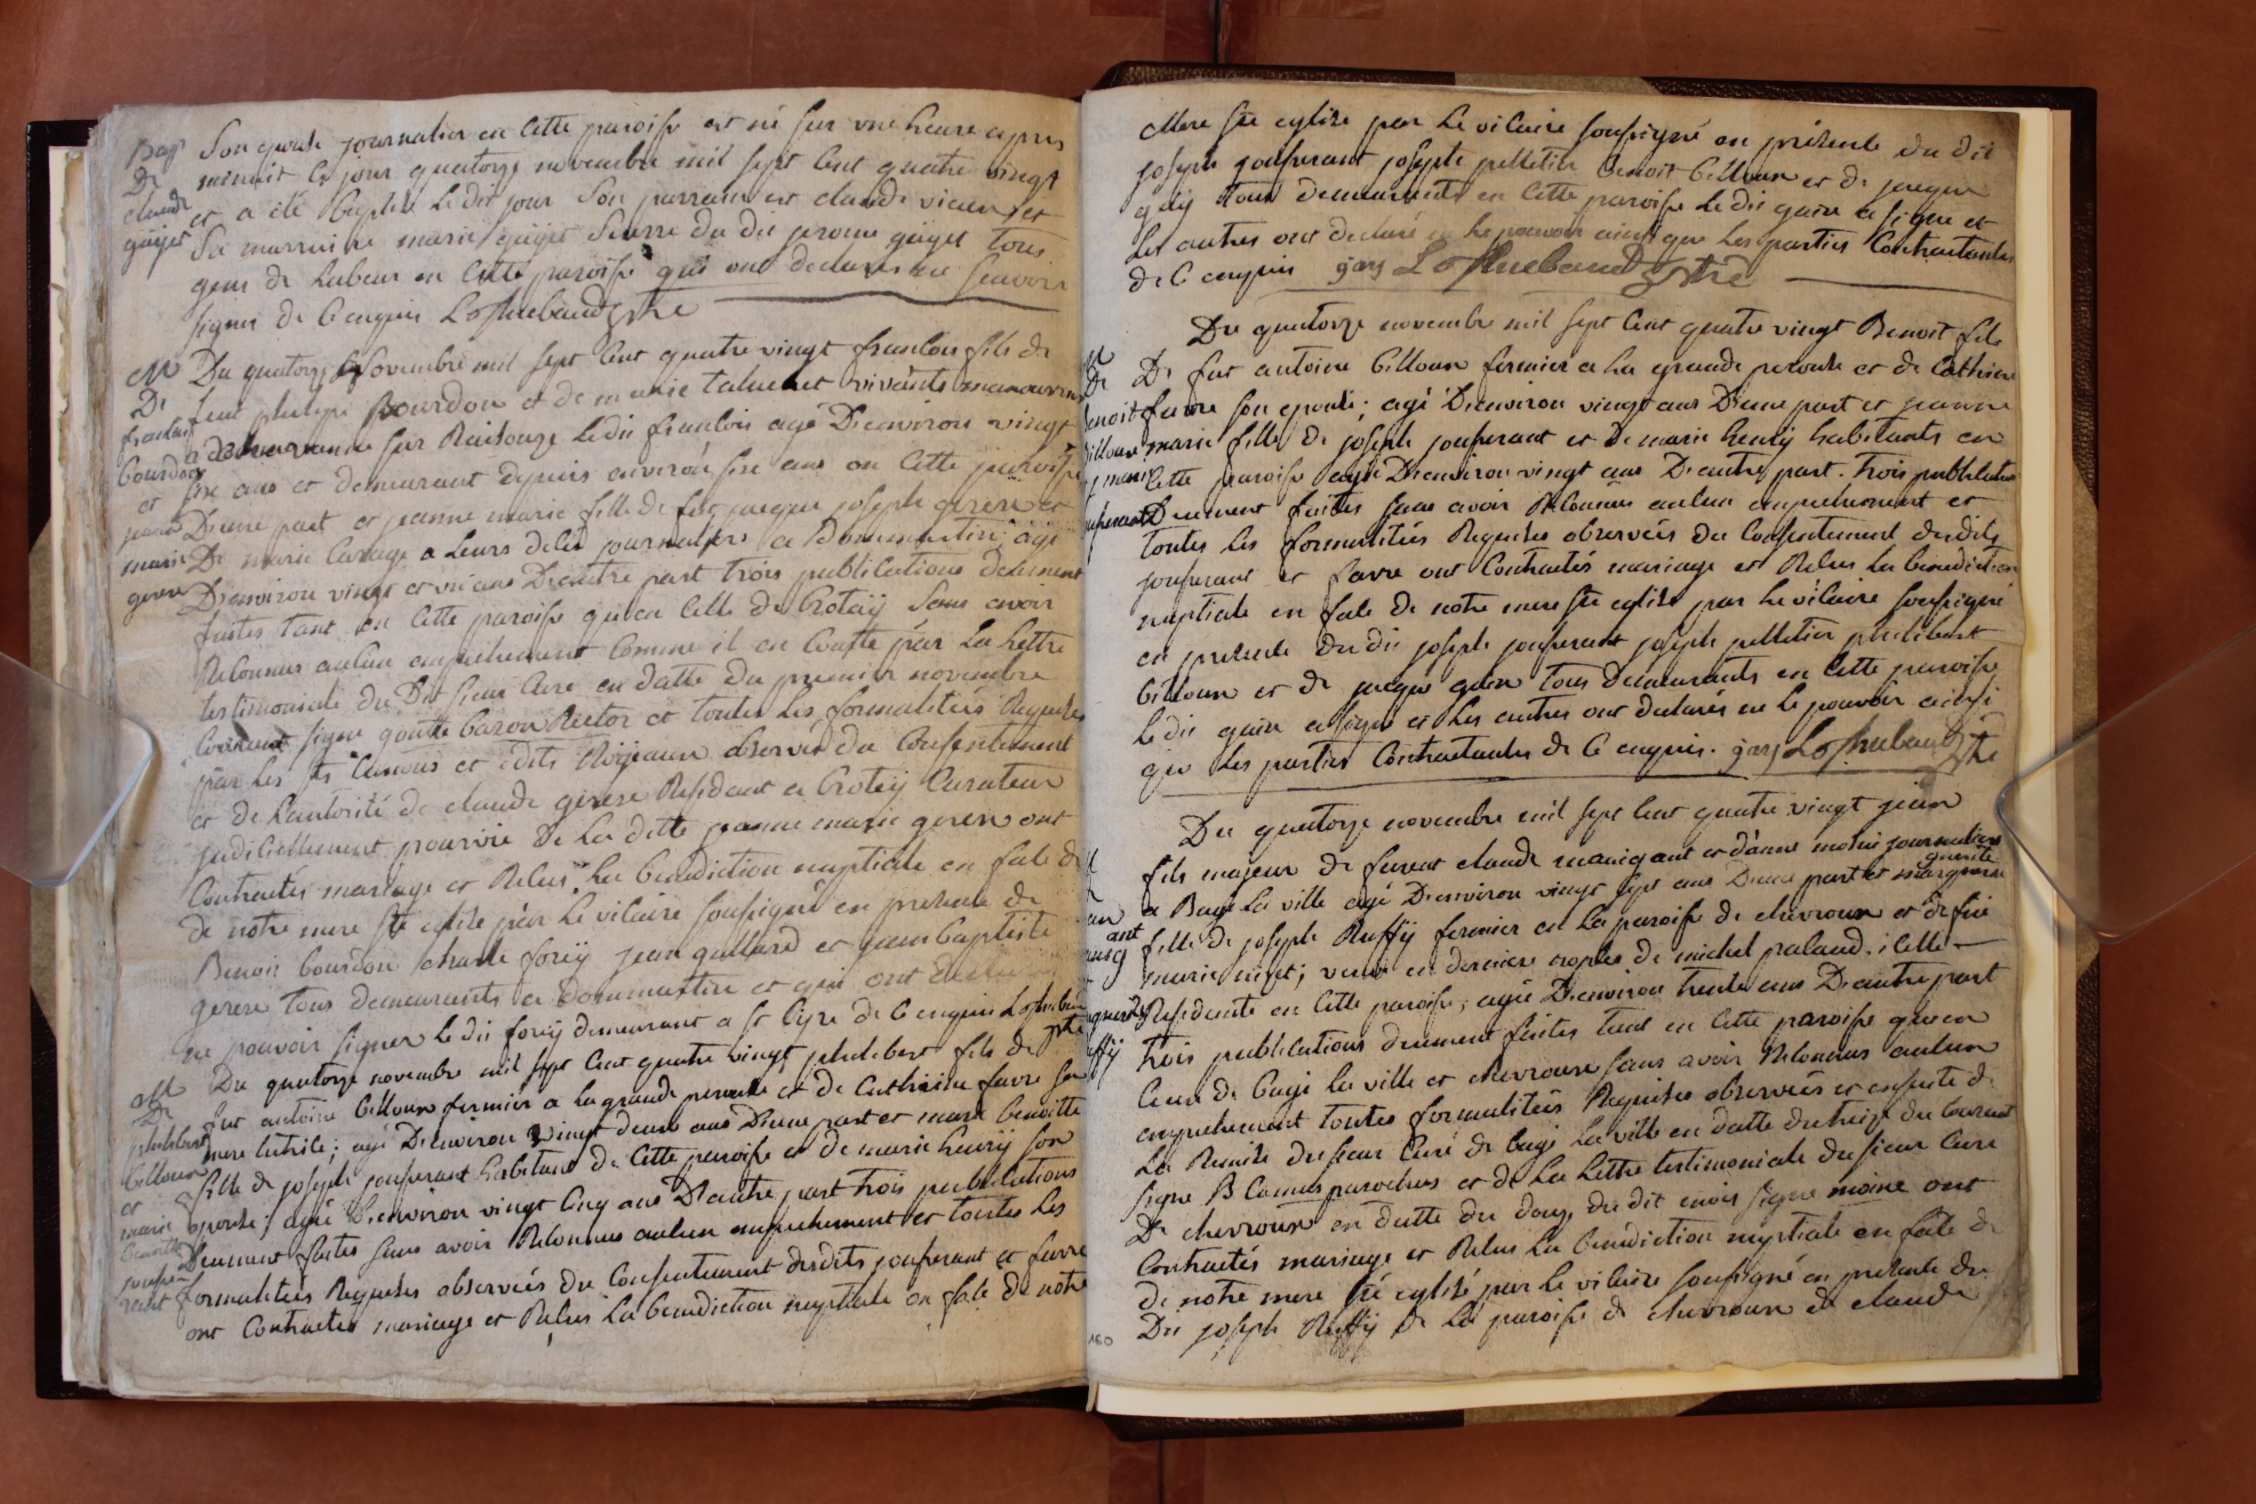 Bap
De
claude
guijet
Son epouse journalier en Cette paroisse est né sur une heure apres
minuit le jour quatorze novembre mil sept Cent quatre vingt
et a été baptisé le dit jour Son parrain est claude
Sa marraine marie guijet du dit guijet tous
gens de Labeur en Cette paroisse qui ont declarés ne Scavoir
signer de Ce enquis Lossthebaud ptre
M
De
francois
bourdon
et
jeanne
marie
gerere
Du quatorze Novembre mil sept Cent quatre vingt francois fils de
feut philipe Bourdon et de marie vivants manouvriers
a sur Raisouze le dit francois agé D'environ vingt
six ans et demeurant depuis environ six ans en Cette paroisse
D'une part et jeanne marie fille de fut jacque joseph gerere et
De marie a Leurs journaliers a Dommartin agé
D'environ vingt et un ans D'autre part trois publications duement
faites tant en Cette paroisse qu'en Celle de Crotaÿ Sans avoir
Reconnus aucun empechement Comme il en Conste par La Lettre
testimoniale du Dit Sieur Curé en datte du premier novembre
Courant signe goutte baron Rector et toutes Les formalitées Requises
par les Sts Canons et edits Roÿaux observés du Consentement
et de L'autorité de claude gerere Residant a Crotaÿ Curateur
judiciellement pourvue De La ditte jeanne marie gerere ont
Contractés mariage et Relus La benediction nuptiale en face de
de notre mere Ste eglise par Le vicaire soussigné en presence de
Benoit bourdon charle foreÿ jean gallard et jean baptiste
gerere tous demeurants a Dommartin et qui ont declarés
ne pouvoir signer le dit foreÿ demeurant a St Cÿre de Ce enquis Lossthebaud
ptre
M
De
philibert
billoux
et
marie
benoitte
jousse
rant
Du quatorze novembre mil sept Cent quatre vingt philibert fils de
fut antoine billoux fermier a la grande perouse et de Cathirine favre sa
mere tutrice; agé D'environ vingt deux ans D'une part et marie benoitte
fille de joseph jousserant habitant de Cette paroisse et de marie henrÿ son
epouse; agée D'environ vingt Cinq ans D'autre part trois publications
Duement faites sans avoir Reconnus aucun empechement et toutes Les
formalitées Requises observées du Consentement desdits jousserant et favre
ont Contractés mariage et Relus La benediction nuptiale en face de notre
Mere Ste eglise par Le vicaire soussigné en présence du dit
joseph jousserant joseph pelletier Benoit billoux et de jacque
gaÿ tous demeurants en Cette paroisse le dit gain a signe et
Les autres ont declaré ne Le pouvoir ainsi que Les parties Contractantes
de Ce enquis gaÿ Lossthebaud ptre
M
De
benoit
billoux
et marie
jousserant
Du quatorze novembre mil sept Cent quatre vingt Benoit fils
De fut antoine billoux fermier a La grande perouse et de Cathirine
favre son epouse; agé D'environ vingt ans D'une part et jeanne
marie fille de joseph jousserant et de marie henrÿ habitants en
Cette paroisse agée D'environ vingt ans D'autre part. trois publications
Duement faites sans avoir Reconnus aucun empechement et
toutes les formalitées Requises observées du Consentement desdits
jousserant et favre ont Contractés mariage et Relus La benediction
nuptiale en face de notre mere Ste eglise par Le vicaire soussigné
en presence du dit joseph jousserant joseph pelletier philibert
billoux et de jacque gain tous Demeurants en Cette paroisse
Le dit gain a signe et Les autres ont declarés ne Le pouvoir ainsi
que Les parties Contractantes de Ce enquis. gaÿ Lossthebaud ptre
Du quatorze novembre mil sept Cent quatre vingt jean
fils majeur de furent claude manigant et d'anne journaliers
a Bagé La ville agé D'environ vingt sept ans D'une part et marguerite
fille de joseph Ruffÿ fermier en La paroisse de chevroux et de fuë
marie nizet; veuve en derniere nopces de michel palaud, icelle
Residente en Cette paroisse; agée D'environ trente ans D'autre part
trois publications duement faites tant en Cette paroisse que en
Ceux de bagé La ville et chevroux sans avoir Reconnus aucun
empechement toutes formalitées Requises observées et ensuite de
La Remise du sieur Curé de bagé La ville en datte du treize du Courant
signe B Camus parochus et de La Lettre testimoniale du sieur Cure
De chevroux en datte du douze du dit mois signe moine ont
Contractés mariage et Relus La benediction nuptiale en face de
de notre mere Ste eglise par Le vicaire soussigné en presence du
Dit joseph Ruffÿ de La paroisse de chevroux de claude
160